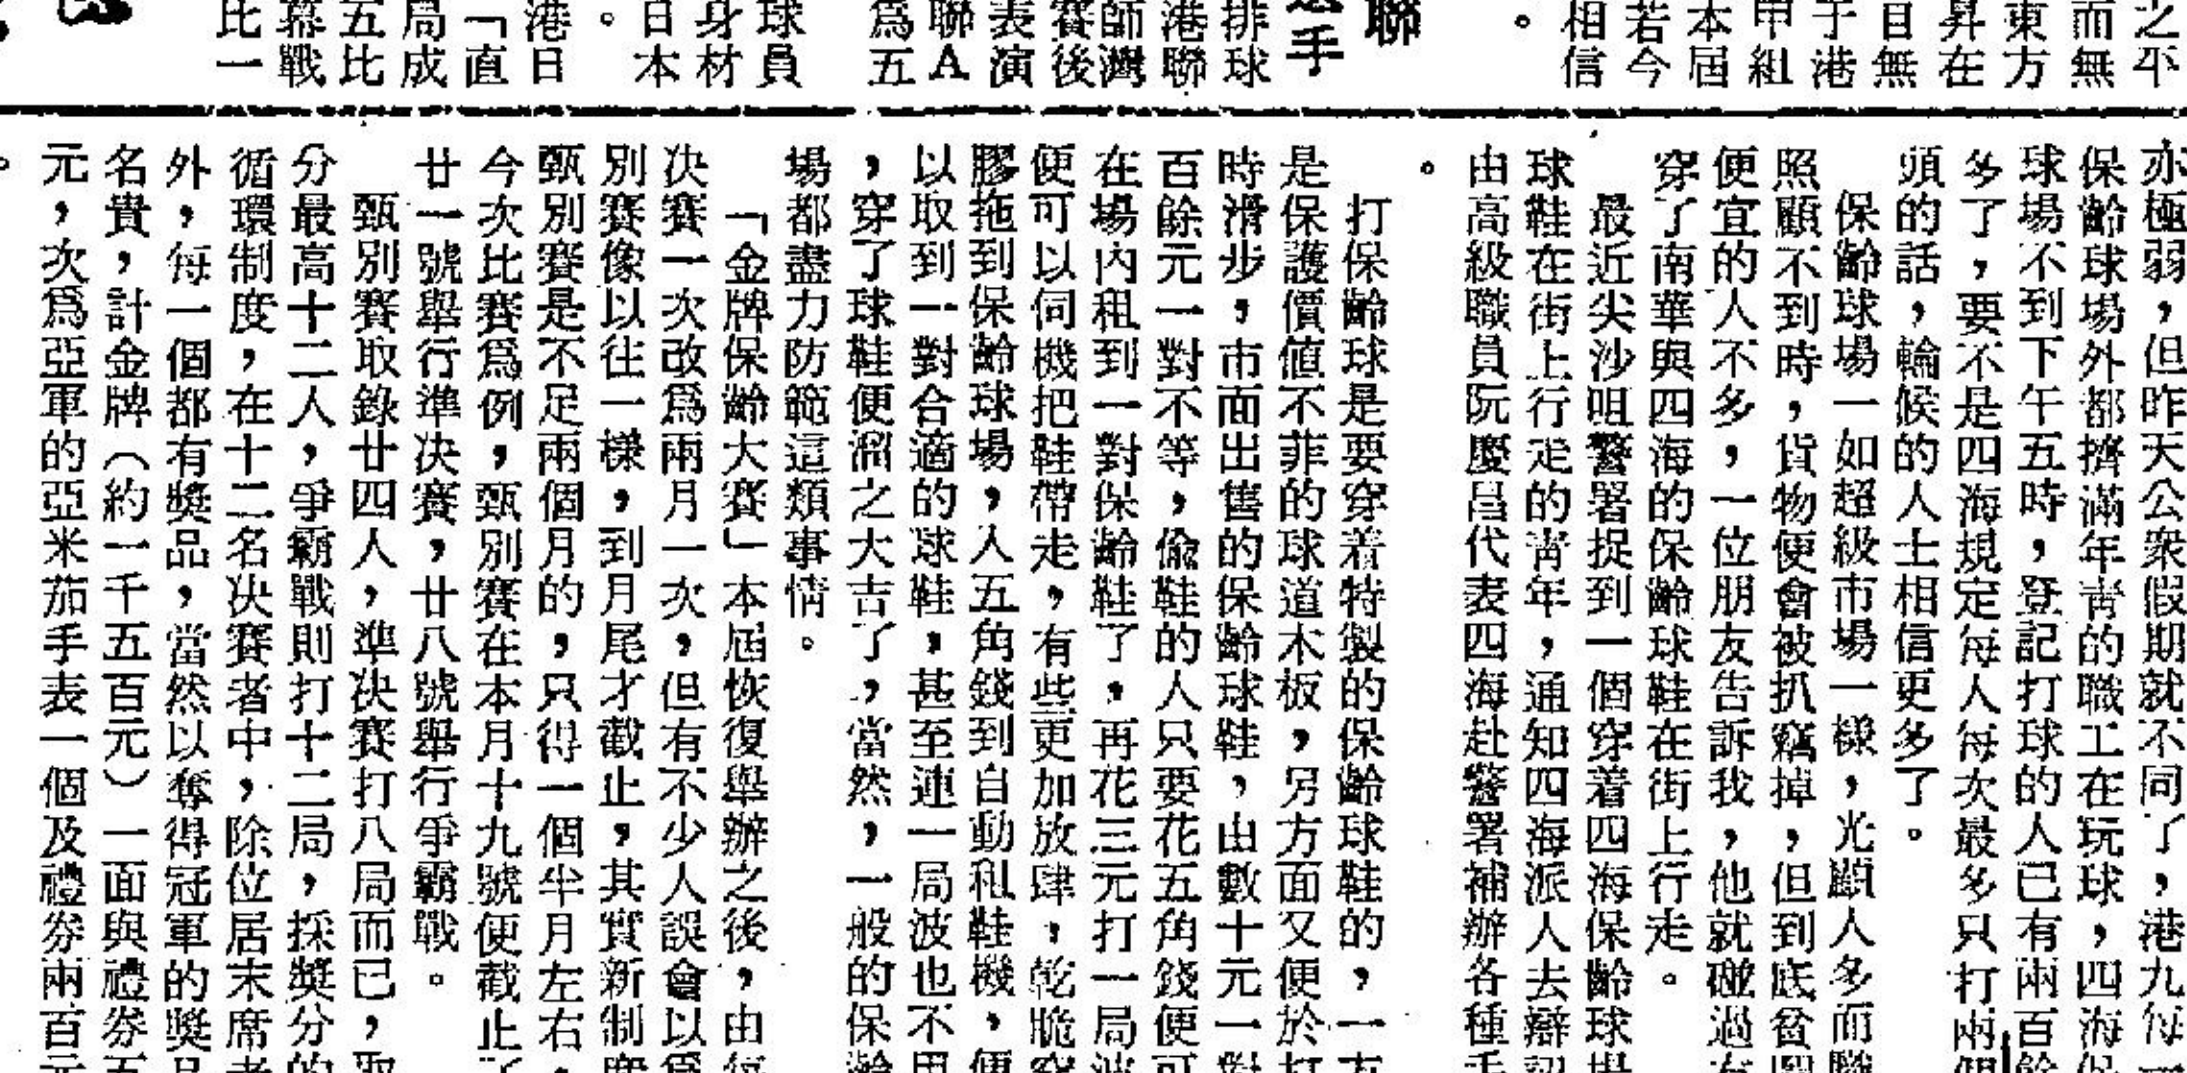 之平
而無
東方
昇在
無
于港
甲組
本屆
若今
相信
。
聯
手
排球
港聯
師灣
賽後
表演
聯A
爲五
球員
身材
日本
。
港日
「直
局成
五比
幕戰
比一
亦極弱，但昨天公衆假期就不同了，港九每一
保齡球場外都擠滿年靑的職工在玩球，四海保
球場不到下午五時，登記打球的人已有兩百餘
多了，要不是四海規定每人每次最多只打兩個
頭的話，輪候的人士相信更多了。
保齡球場一如超級市場一樣，光顧人多而職
照顧不到時，貨物便會被扒竊掉，但到底貪圖
便宜的人不多，一位朋友告訴我，他就碰過有
穿了南華與四海的保齡球鞋在街上行走。
最近尖沙咀警署捉到一個穿着四海保齡球場
球鞋在街上行走的靑年，通知四海派人去辯認
由高級職員阮慶昌代表四海赴警署補辦各種手
。
打保齡球是要穿着特製的保齡球鞋的，一方
是保護價值不菲的球道木板，另方面又便於打
時滑步，市面出售的保齡球鞋，由數十元一對
百餘元一對不等，偸鞋的人只要花五角錢便可
在場內租到一對保齡鞋了，再花三元打一局波
便可以伺機把鞋帶走，有些更加放肆，乾脆穿
膠拖到保齡球場，人五角錢到自動租鞋機，便
以取到一對合適的球鞋，甚至連一局波也不用
，穿了球鞋便溜之大吉了，當然，一般的保齡
場都盡力防範這類事情。
「金牌保齡大賽」本屆恢復舉辦之後，由每
决賽一次改爲兩月一次，但有不少人誤會以爲
別賽像以往一樣，到月尾才截止，其實新制度
甄別賽是不足兩個月的，只得一個半月左右，
今次比賽爲例，甄別賽在本月十九號便截止了
廿一號舉行準决賽，廿八號舉行爭霸戰。
甄別賽取錄廿四人，準决賽打八局而已，取
分最高十二人，爭霸戰則打十二局，採獎分的
循環制度，在十二名决賽者中，除位居末席者
外，每一個都有獎品，當然以奪得冠軍的獎品
名貴，計金牌（約一千五百元）一面與禮券五
元，次爲亞軍的亞米茄手表一個及禮券兩百元
。